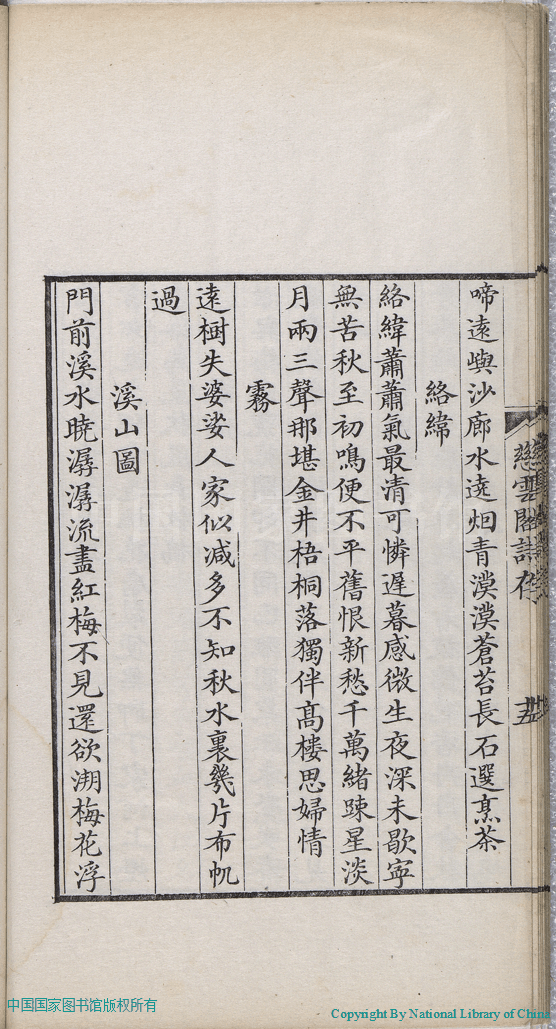 啼遠嶼沙廊水遶烟青漠漠蒼苔長石選烹茶
絡緯
絡緯蕭蕭氣最清可憐遲暮感微生夜深未歇寧
無苦秋至初鳴便不平舊恨新愁千萬緒踈星淡
月兩三聲那堪金井梧桐落獨伴髙樓思婦情
霧
遠樹失婆娑人家似减多不知秋水裏幾片布帆
過
溪山圖
門前溪水曉潺潺流盡紅梅不見還欲溯梅花浮
慈雲閣詩存
中国国家图书馆版权所有
Copyright By National Library of China